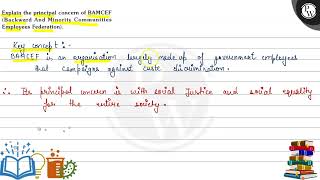 Explain the principal concern of BAMCEF
(Backward And Minority Communities
Employees Federation).
Key concept :-
BAMCEF is an organisation largely made up of government employees
that campaigns against caste discrimination.
∴ Its principal concern is with social Justice and social equality
for the entire society.